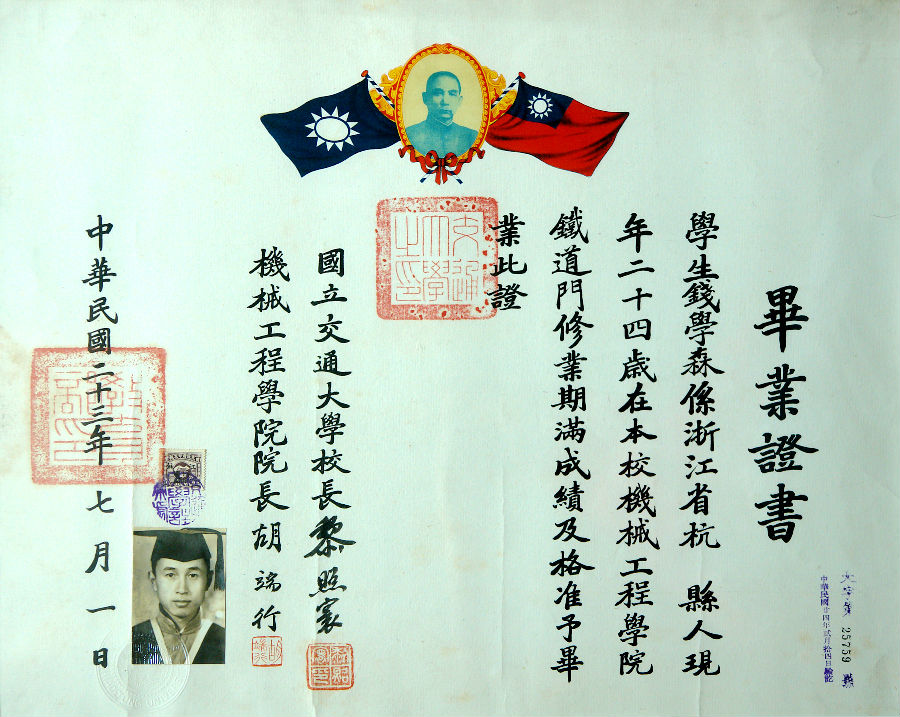 畢業證書
學生錢學森係浙江省杭縣人現
年二十四歲在本校機械工程學院
鐵道門修業期滿成績及格准予畢
業此證
國立交通大學校長黎照寰
機械工程學院院長胡端行
中華民國二十三年七月一日
交通大學之印
教育部印
大字第25759號
中華民國廿四年貳月拾四日驗訖